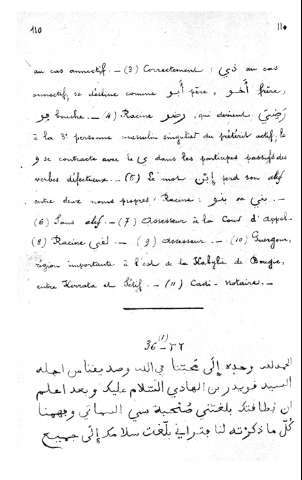 110 ١١٠
au cas annectif. — (3) Correctement : ذي au cas
annectif, se décline comme أبو père, أخو frère,
فو bouche. — (4) Racine رضو, qui devient رَضِيَ
à la 3e personne masculin singulier du prétérit actif, le
و se contracte avec le ى dans les participes passifs des
verbes défectueux. — (5) Le mot إبن perd son alif
entre deux noms propres : Racine : بنو ou بنى. —
(6) Sans alif. — (7) Assesseur à la Cour d'Appel. —
(8) Racine لغى. — (9) Assesseur. — (10) Guergour,
région importante à l'est de la Kabylie de Bougie,
entre Kerrata et Sétif. — (11) Cadi-Notaire. —
36 (1) — ٣٦
الحمد لله وحده إلى محبنا في الله وصديقنا من اجله
السيد قويدر بن الهادي السلام عليك وبعد اعلم
ان بطاقتك بلغتني صحبة سي السماتي وفهمنا
كل ما ذكرته لنا بلغت سلامك إلى جميع